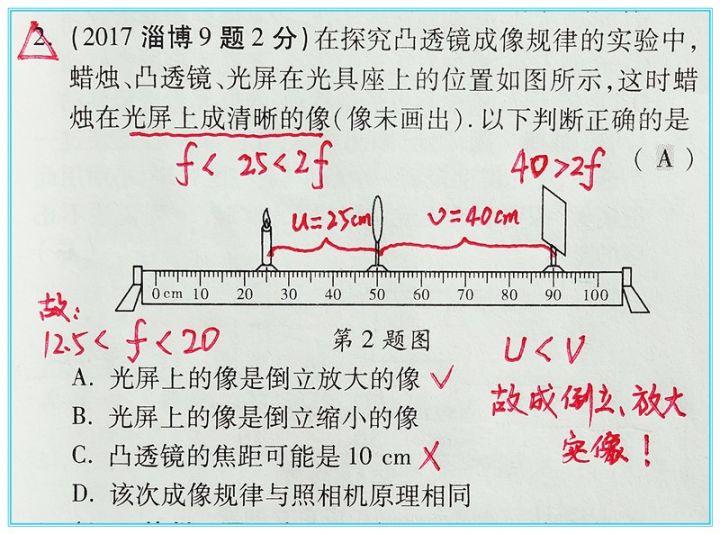 2. (2017 淄博 9 题 2 分)在探究凸透镜成像规律的实验中,
蜡烛、凸透镜、光屏在光具座上的位置如图所示,这时蜡
烛在光屏上成清晰的像(像未画出). 以下判断正确的是
( A )
f< 25<2f
40>2f
u=25cm
v=40cm
0cm 10 20 30 40 50 60 70 80 90 100
故:
12.5< f <20
第 2 题图
U<V
A. 光屏上的像是倒立放大的像 ✓
故成倒立、放大
B. 光屏上的像是倒立缩小的像
实像!
C. 凸透镜的焦距可能是 10 cm ✗
D. 该次成像规律与照相机原理相同